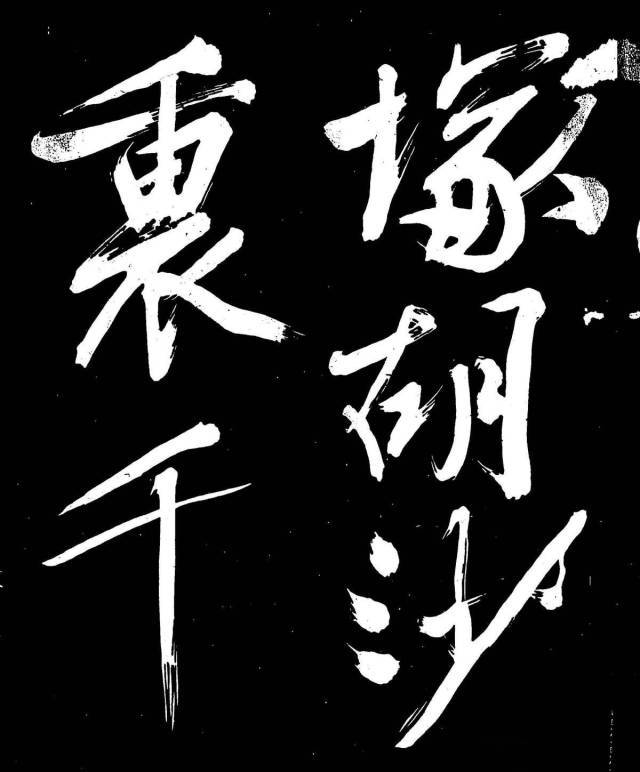 塚胡沙
裏千